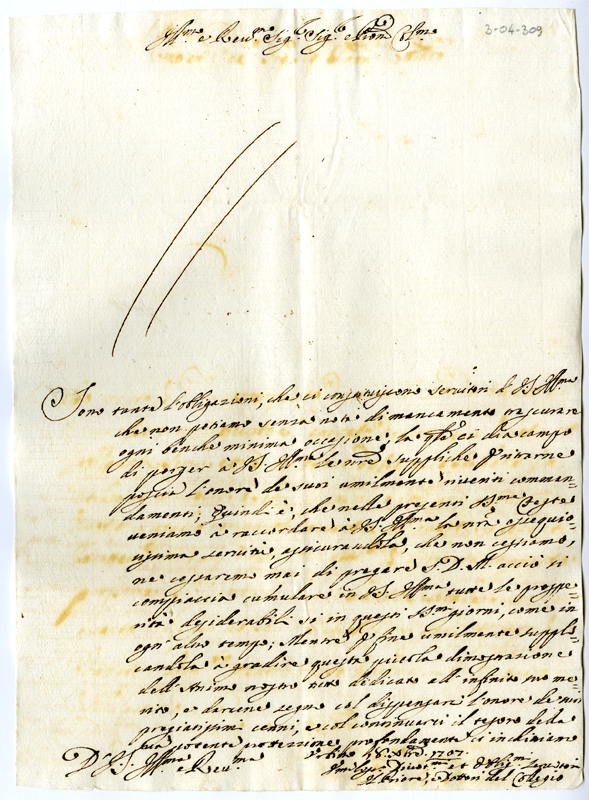 3-04-309
Ill.mo e Rev.mo Sig.r Sig.r e Pron Col.mo
Sono tante l'obligazioni, che ci constituiscono servitori di VS Ill.ma
che non potiamo senza nota di mancamento trascurare
ogni benche minima occasione, la qle ci dia campo
di porger à VS Ill.ma le nre suppliche p ritrarne
poscia l'onore de suoi umilmente riveriti comman=
damenti; Quindi è, che nelle presenti SSme Feste
veniamo à raccordare à VS Ill.ma la nra ossequio=
sissima servitù, assicurandola, che non cessiamo,
ne cessaremo mai di pregare S. D. M. acciò si
compiaccia cumulare in VS. Ill.ma tutte le prospe=
rità desiderabili si in questi SSmi giorni, come in
ogn' altro tempo; Mentre p fine umilmente suppli=
candola à gradire questa piccola dimostrazione
dell'Animo nostro tutto dedicato all'infinito suo me=
rito, e darcene segno col dispensarci l'onore de suoi
pregiatissimi cenni, e col continuarci il tesoro della
sua potente protezzione profondamente ci inchiniamo
Di VS. Ill.ma e Rev.ma
Xbre 1707.
Il Priore, e Dottori del Colegio